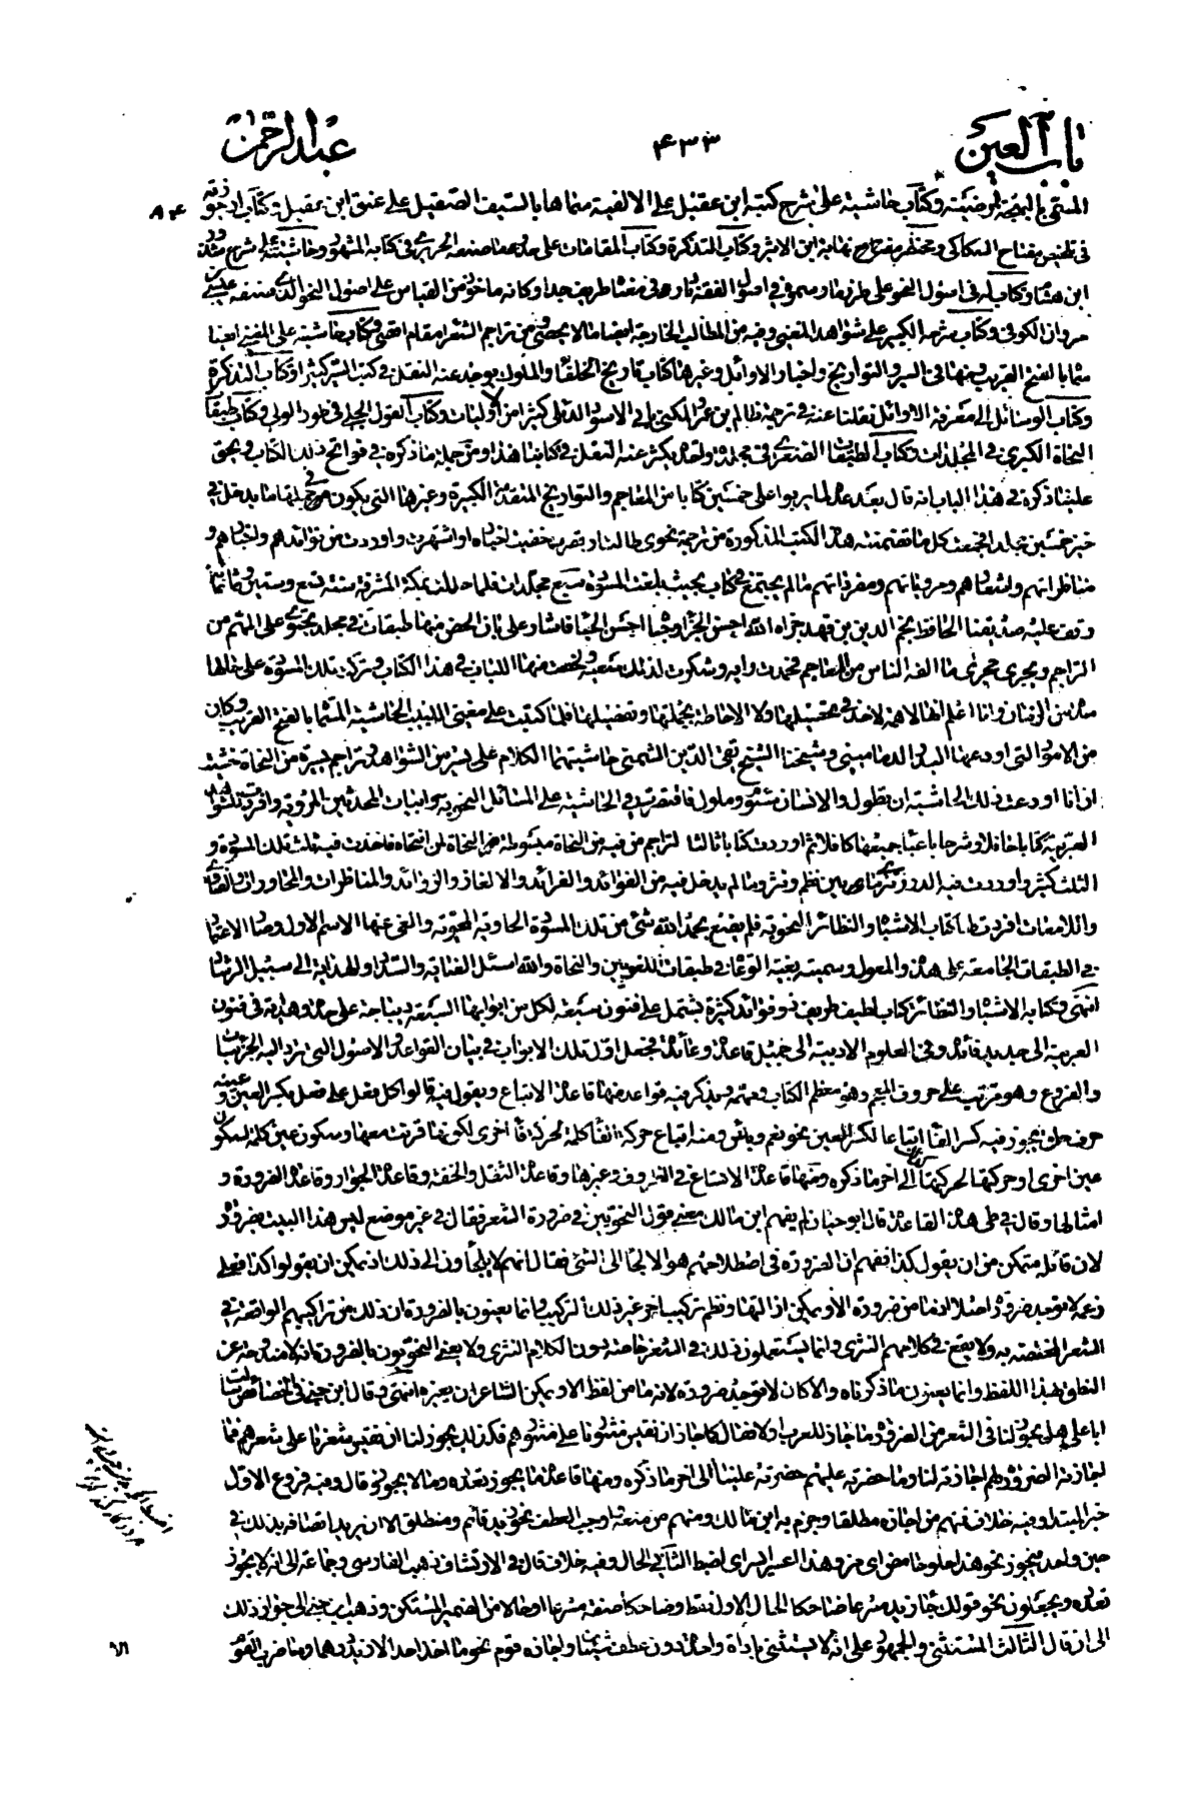 باب العين
۴۳۳
عبد الرحمن
المسمى بالبهجة المرضية وكتاب حاشيته على شرح كتبه ابن عقيل على الالفية سماها بالسيف الصقيل على عنق ابن عقيل وكتاب ارجوزته
في تلخيص مفتاح السكاكي ومختصر نهاية ابن الاثير وكتاب التذكرة وكتاب المقامات على حد ما صنفه الحريري في كتابه المشهور وحاشيته على شرح شذور
ابن هشام وكتاب له في اصول النحو على طرز ما رسموه في اصول الفقه نادر في معناه طريف جدا وكانه ماخوذ من القياس على اصول النحو الذي صنفه عيسى بن
مروان الكوفي وكتاب شرحه الكبير على شواهد المغني وفيه من المطالب الخارجة ايضا ما لا يحصى ومن تراجم الشعراء مقام اقصى وكتاب حاشيته على المغني ايضا
سماها بالفتح القريب ومنها في السير والتواريخ واخبار الاوائل وغيرها كتاب تاريخ الخلفاء والملوك يوجد عنه النقل في كتب السير كثيرا وكتاب التذكرة
وكتاب الوسائل الى معرفة الاوائل نقلنا عنه في ترجمة ظالم بن عمرو المكنى بابي الاسود الدئلي كثيرا من الاوليات وكتاب القول الجلي في طور الولي وكتاب طبقات
النحاة الكبرى في المجلدات وكتاب الطبقات الصغرى في مجلدة واحدة يكثر عنه النقل في كتابنا هذا ومن جملة ما ذكره في فواتح ذلك الكتاب وبحق
علينا ذكره في هذا الباب انه قال بعد عده لما يربوا على خمسين كتابا من المعاجم والتواريخ المتقدمة الكبيرة وغيرها التي يكون مرجعها ما يدخل في
خبر خمسين مجلدا فجمعت كل ما تضمنته هذه الكتب المذكورة من ترجمة نحوى طالت او قصرت خفيت اخباره او اشتهرت واوردت من فوائدهم واخبارهم و
مناظراتهم واشعارهم ومروياتهم ومفرداتهم ما لم يجتمع في كتاب بحيث بلغت المسودة سبع مجلدات فلما حللت بمكة المشرفة سنة تسع وستين وثمانمائة
وقف عليه صديقنا الحافظ نجم الدين بن فهد جزاه الله احسن الجزاء وحياه احسن الحيا فاشار على بان الخص منها طبقات في مجلد يحتوي على المهم من
التراجم ويجرى مجرى ما الفه الناس من المعاجم فحمدت رايه وشكرت لذلك سعيه ولخصت منها اللباب في هذا الكتاب وتركت تلك المسودة على حالها
مدة من الزمان وانا اعلم انها لا همة لاحد في تحصيلها ولا الاحاطة بجملتها وتفضيلها فلما كتبت على مغني اللبيب الحاشية المسماة بالفتح القريب وكان
من الامور التي اودعها البدر الدماميني وشيخنا الشيخ تقي الدين الشمني حاشيتهما الكلام على يسير من الشواهد وتراجم يسيرة من النحاة خشيت
ان انا اودعت ذلك الحاشية ان تطول والانسان سئوم ملول فاقتصرت في الحاشية على المسائل النحوية وابيات المحدثين المروية وافردت للشواهد
العربية كتابا حافلا وشرحا باعبا جميعها كافلا ثم اوردت كتابا ثالثا لتراجم من فيه من النحاة مبسوطة من النحاة لمن انتحاه فاخذت فيه ثلث تلك المسودة و
الثلث كثير واوردت فيه الدرر نثرها ما بين نظم ونثر وما لم يدخل فيه من الفوائد والفرائد والالغاز والزوائد والمناظرات والمحاورات والفتاوى
والملاحظات افردت لها كتاب الاشباه والنظائر النحوية فلم يضع بحمد الله شئ من تلك المسودة الحاوية المحتوية والغي عنها الاسم الاول وصار الاعتماد
في الطبقات الجامعة على هذه والمعول وسميته بغية الوعاة في طبقات اللغويين والنحاة والله اسئل العناية والسداد والهداية الى سبيل الرشاد
انتهى وكتابه الاشباه والنظائر كتاب لطيف طريف ذو فوائد كثيرة يشتمل على فنون سبعة لكل من ابوابها السبعة ديباجة على حدة وهدية في فنون
العربية الى جديد فائدة وفي العلوم الادبية الى جميل قاعدة وعائدة فجعل اول تلك الابواب في بيان القواعد والاصول التي ترد اليه الجزئيات
والفروع وهو مرتب على حروف المعجم وهو معظم الكتاب ومهمه ويذكر فيه قواعد منها قاعدة الاتباع ويقول فيه قالوا كل فعل على فعل بكسر العين وعينه
حرف حلق يجوز فيه كسر الفاء اتباعا لكسر العين نحو نعم وبئس ومنه اتباع حركة الفاء كلمة لحركة فاء اخرى لكونها قرنت معها وسكون عين كلمة لسكون
عين اخرى او حركتها لحركتها الى اخر ما ذكره ومنها قاعدة الاتساع في الظروف وغيرها وقاعدة الثقل والخفة وقاعدة الجوار وقاعدة الضرورة و
امثالها وقال في طى هذه القاعدة قال ابو حيان لم يفهم ابن مالك معنى قول النحويين في ضرورة الشعر فقال في غير موضع ليس هذا البيت بضرورة
لان قائله متمكن من ان يقول كذا ففهم ان الضرورة في اصطلاحهم هو الالجاء الى الشئ فقال انهم لا يلجأون الى ذلك اذ يمكن ان يقولوا كذا فعلى
زعمه لا توجد ضرورة اصلا اذ ما من ضرورة الا ويمكن ازالتها ونظم تركيب اخر غير ذلك التركيب وانما يعنون بالضرورة ان ذلك من تراكيبهم الواقعة في
الشعر المختصة به ولا يقع في كلامهم النثرى وانما يستعملون ذلك في الشعر خاصة دون الكلام النثرى ولا يعنى النحويون بالضرورة انه لا مندوحة عن
النطق بهذا اللفظ وانما يعنون ما ذكرناه والا كان لا توجد ضرورة لانه ما من لفظ الا ويمكن الشاعر ان يغيره انتهى وقال ابن جني في الخصائص سالت
ابا علي هل يجوز لنا في الشعر من الضرورة ما جاز للعرب اولا فقال كما جاز ان نقيس منثورنا على منثورهم فكذلك يجوز لنا ان نقيس شعرنا على شعرهم فما
اجازته الضرورة لهم اجازته لنا وما حضرته عليهم حضرته علينا الى اخر ما ذكره ومنها قاعدة ما يجوز تعدده وما لا يجوز قال وفيه فروع الاول
خبر المبتدا وفيه خلاف فمنهم من اجازه مطلقا وجزم به ابن مالك ومنهم من منعه واوجب العطف نحو زيد قائم ومنطلق الا ان يريد اتصافه بذلك في
حين واحد فيجوز نحو هذا حلو حامض اي مز وهذا اعسر ايسر اى اضبط الثاني الحال وفيه خلاف قال في الارتشاف ذهب الفارسى وجماعة الى انه لا يجوز
تعدده ويجعلون نحو قولك جاء زيد مسرعا ضاحكا الحال الاول فقط وضاحكا صفة مسرعا او حالا من الضمير المستكن وذهب ابن جني الى جواز ذلك
الى ان قال الثالث المستثنى والجمهور على انه لا يستثنى باداة واحدة دون عطف شيئان واجازه قوم نحو ما اخذ احد الا زيد درهما وما ضرب القوم